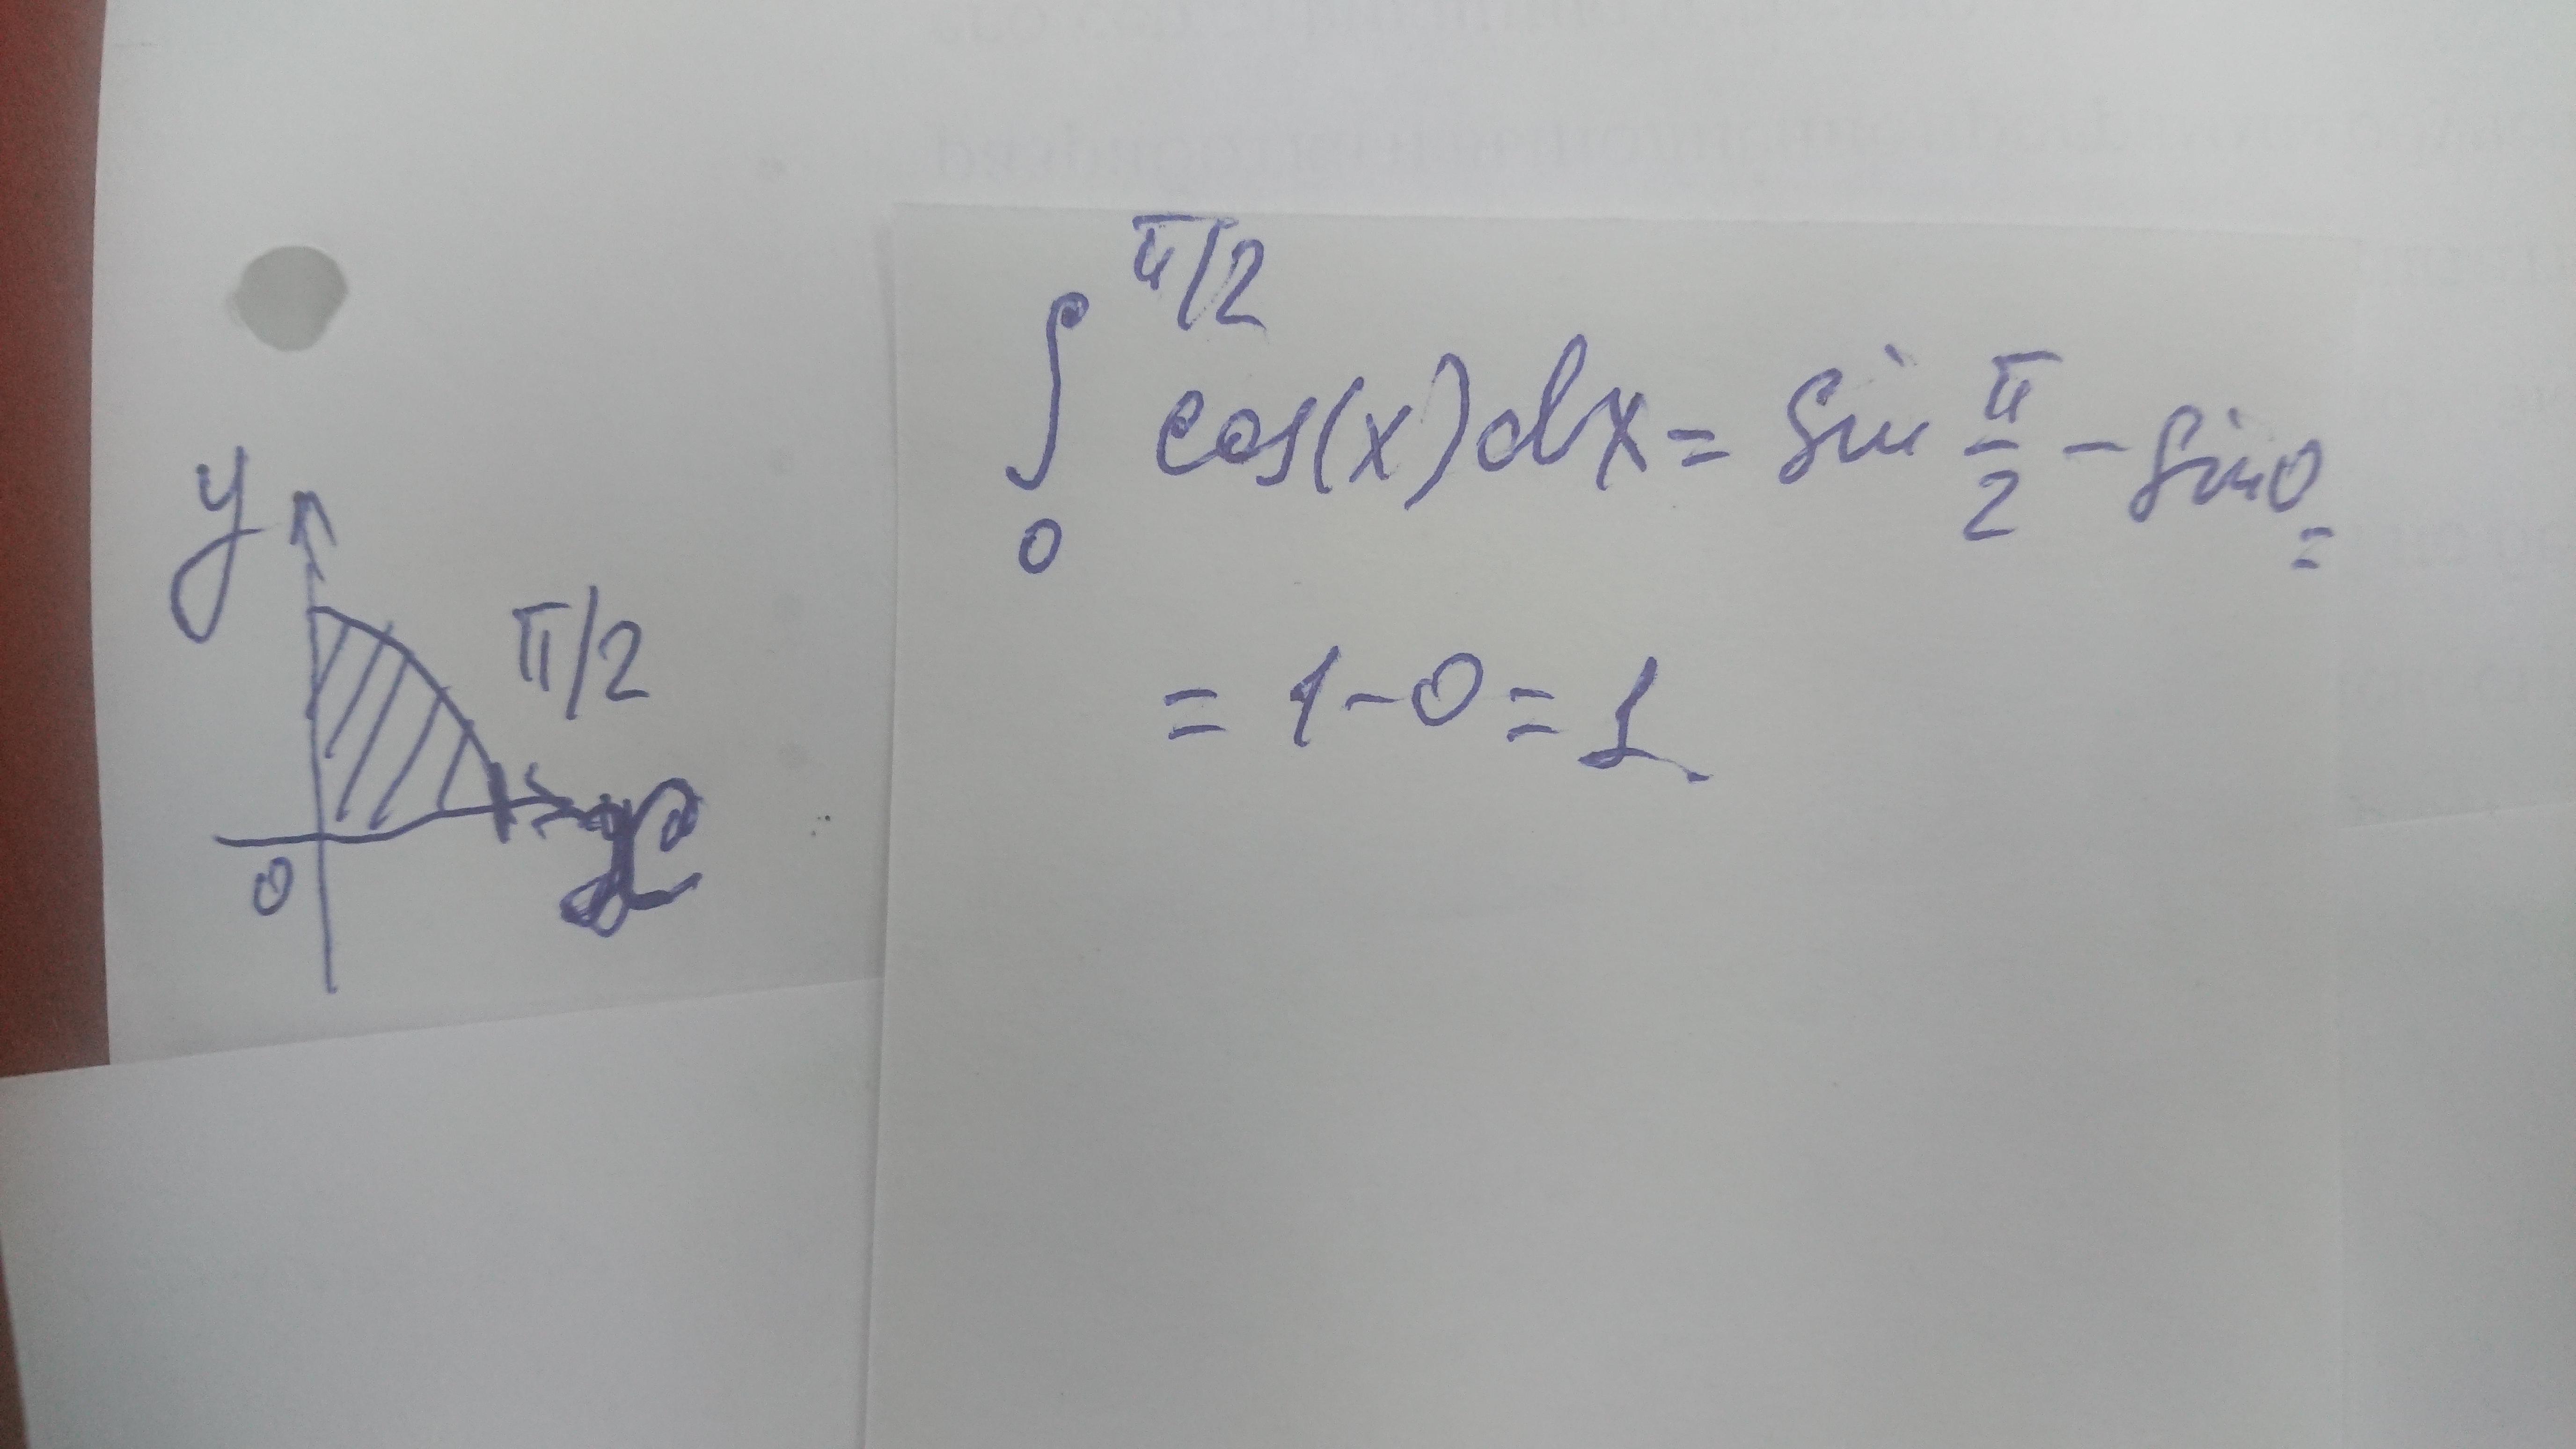 y
π/2
0
x
π/2
∫ cos(x)dx = sin π/2 - sin 0 =
0
= 1 - 0 = 1